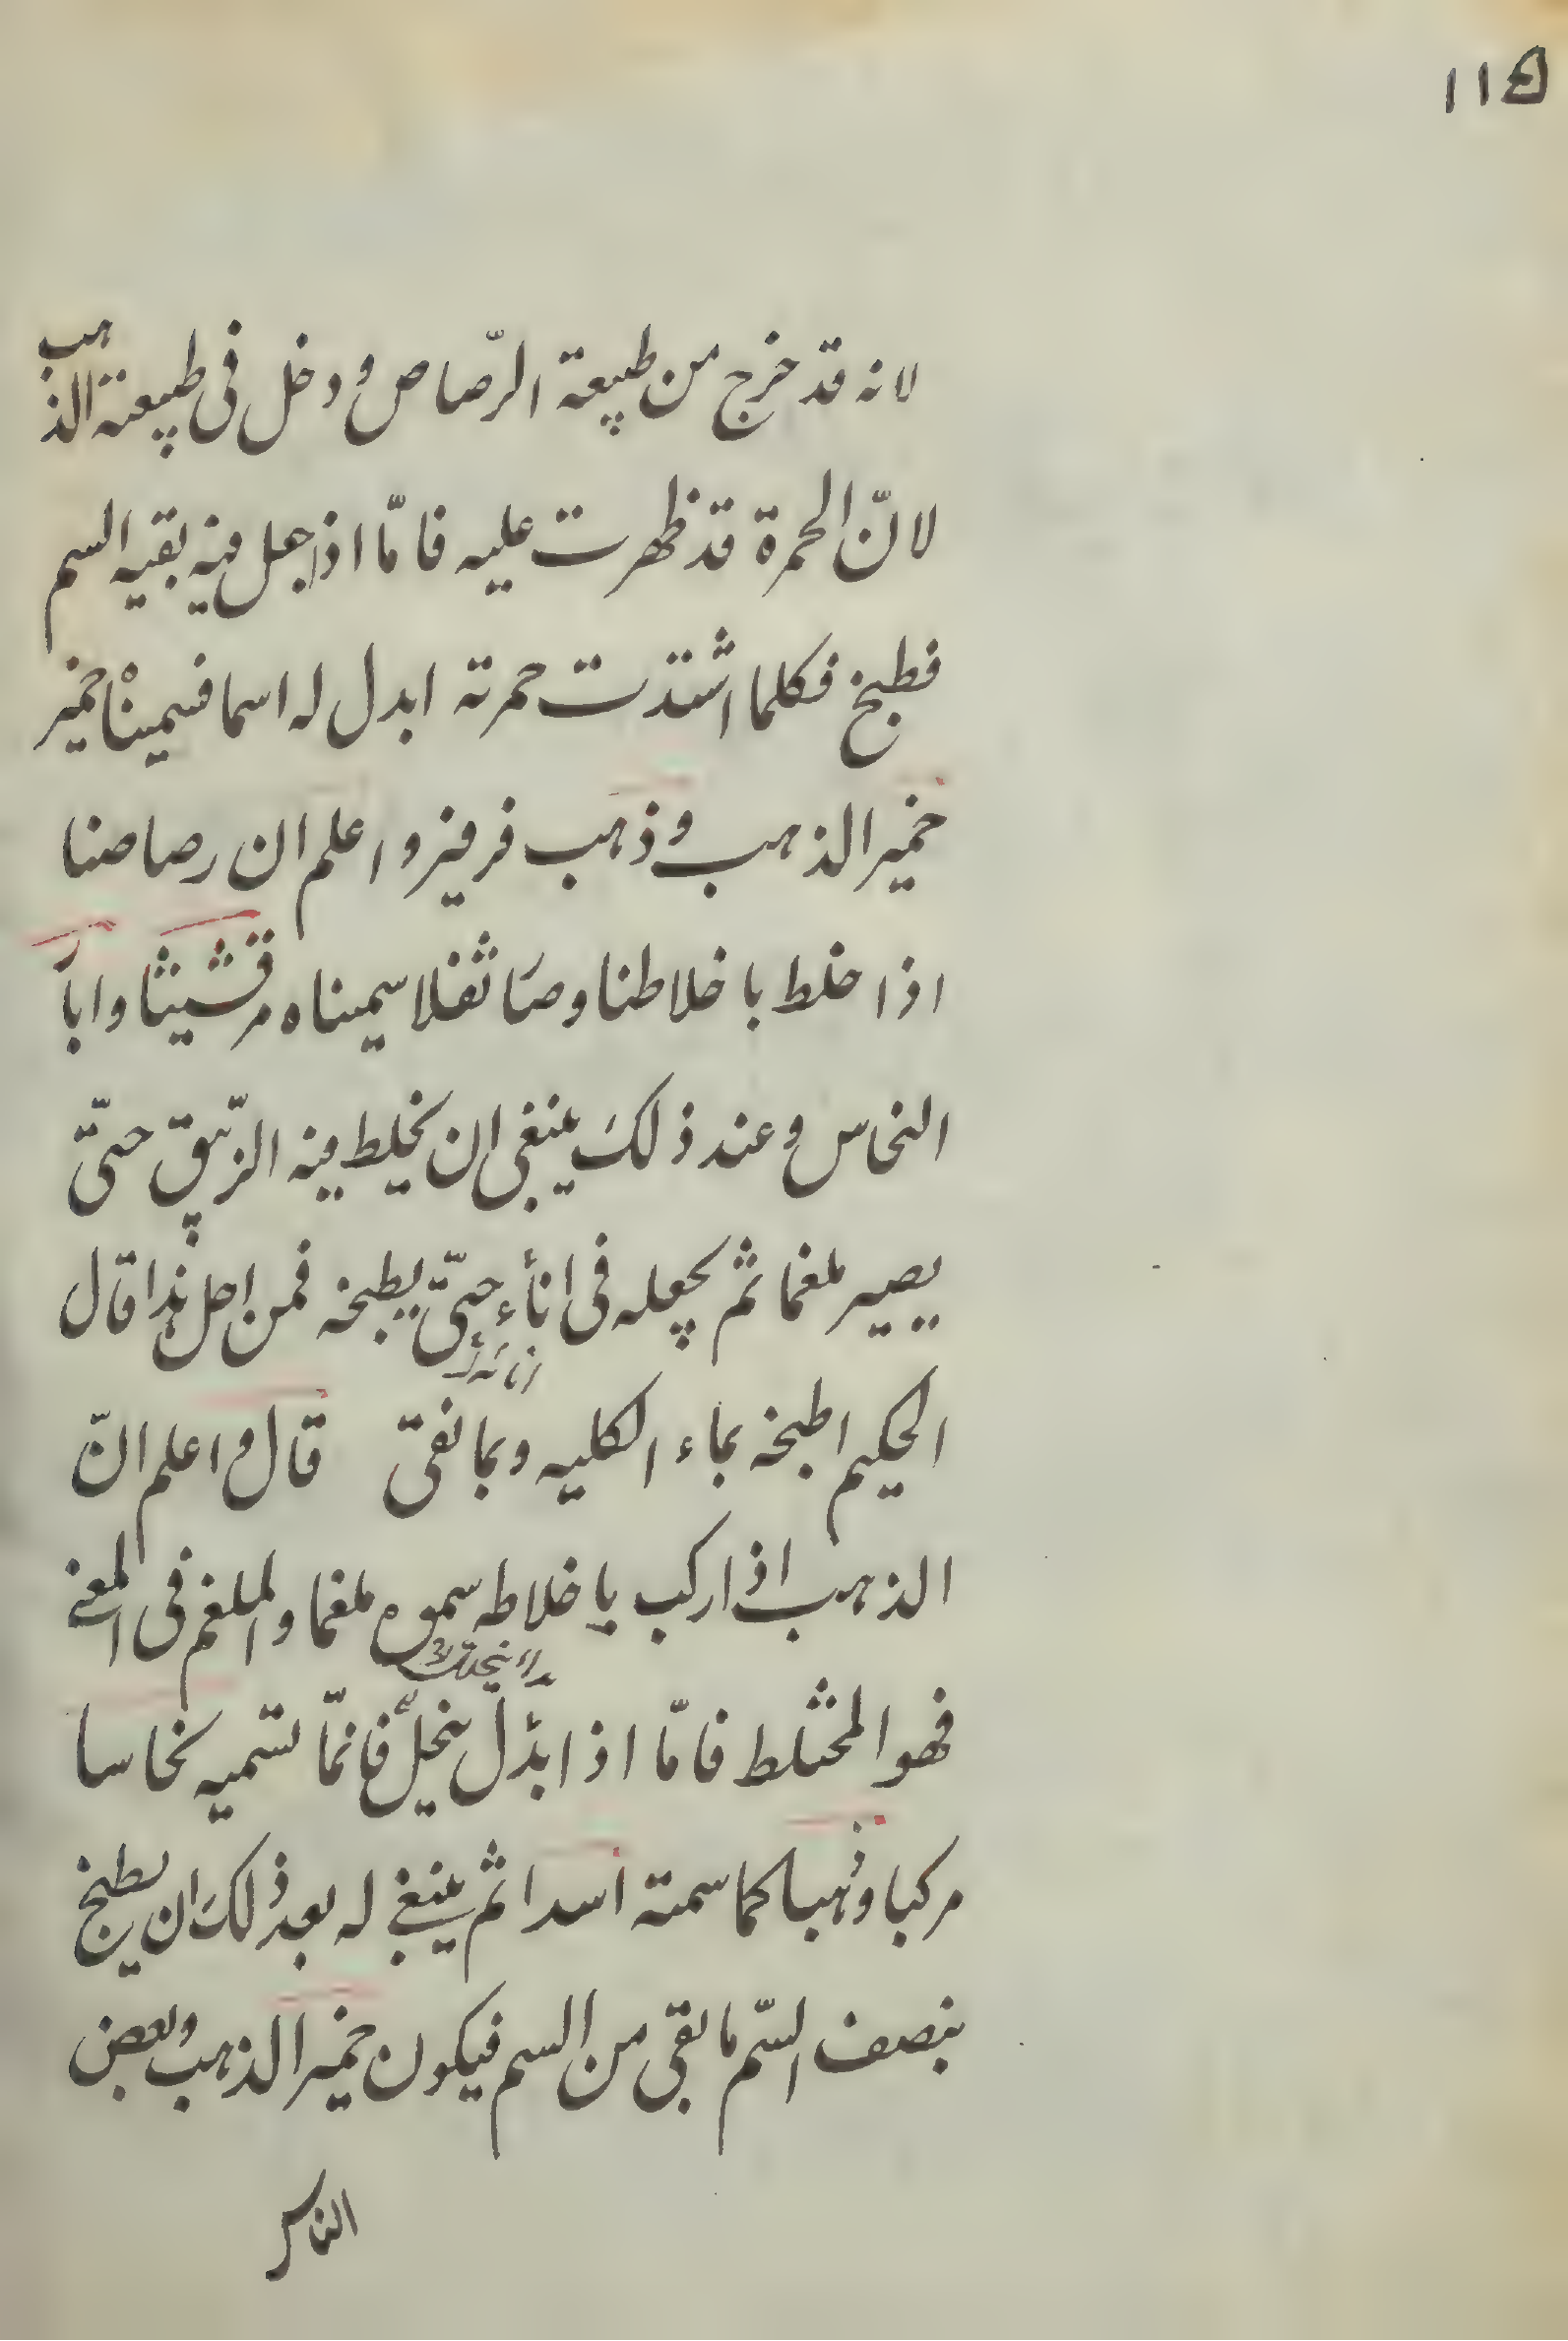 ١١٥
لانه قد خرج من طبيعة الرّصاص ودخل فى طبيعة الذهب
لانّ الحمرة قد ظهرت عليه فامّا اذا جعل فيه بقيه السم
فطبخ فكلما اشتدت حمرته ابدل له اسما فسميناه خمير
خمير الذهب وذهب فرفيز واعلم ان رصاصنا
اذا خلط باخلاطنا وصار ثفلا سميناه مرقشيثا وابار
النحاس وعند ذلك ينبغى ان يخلط فيه الزيبق حتّى
يصير ملغما ثم يجعله فى اناء حتّى يطبخه فمن اجل هذا قال
الحكيم اطبخه بماء الكليه وبما نقى قال واعلم انّ
الذهب اذا ركب باخلاطه سموه ملغما والملغم فى المعنى
فهو المختلط فامّا اذا ابدل ينحل فانمّا تسميه نحاسا
مركبا وذهبا كما سمته اسدا ثم ينبغى له بعد ذلك ان يطبخ
بنصف السّم ما بقى من السم فيكون خمير الذهب وبعض
الناس